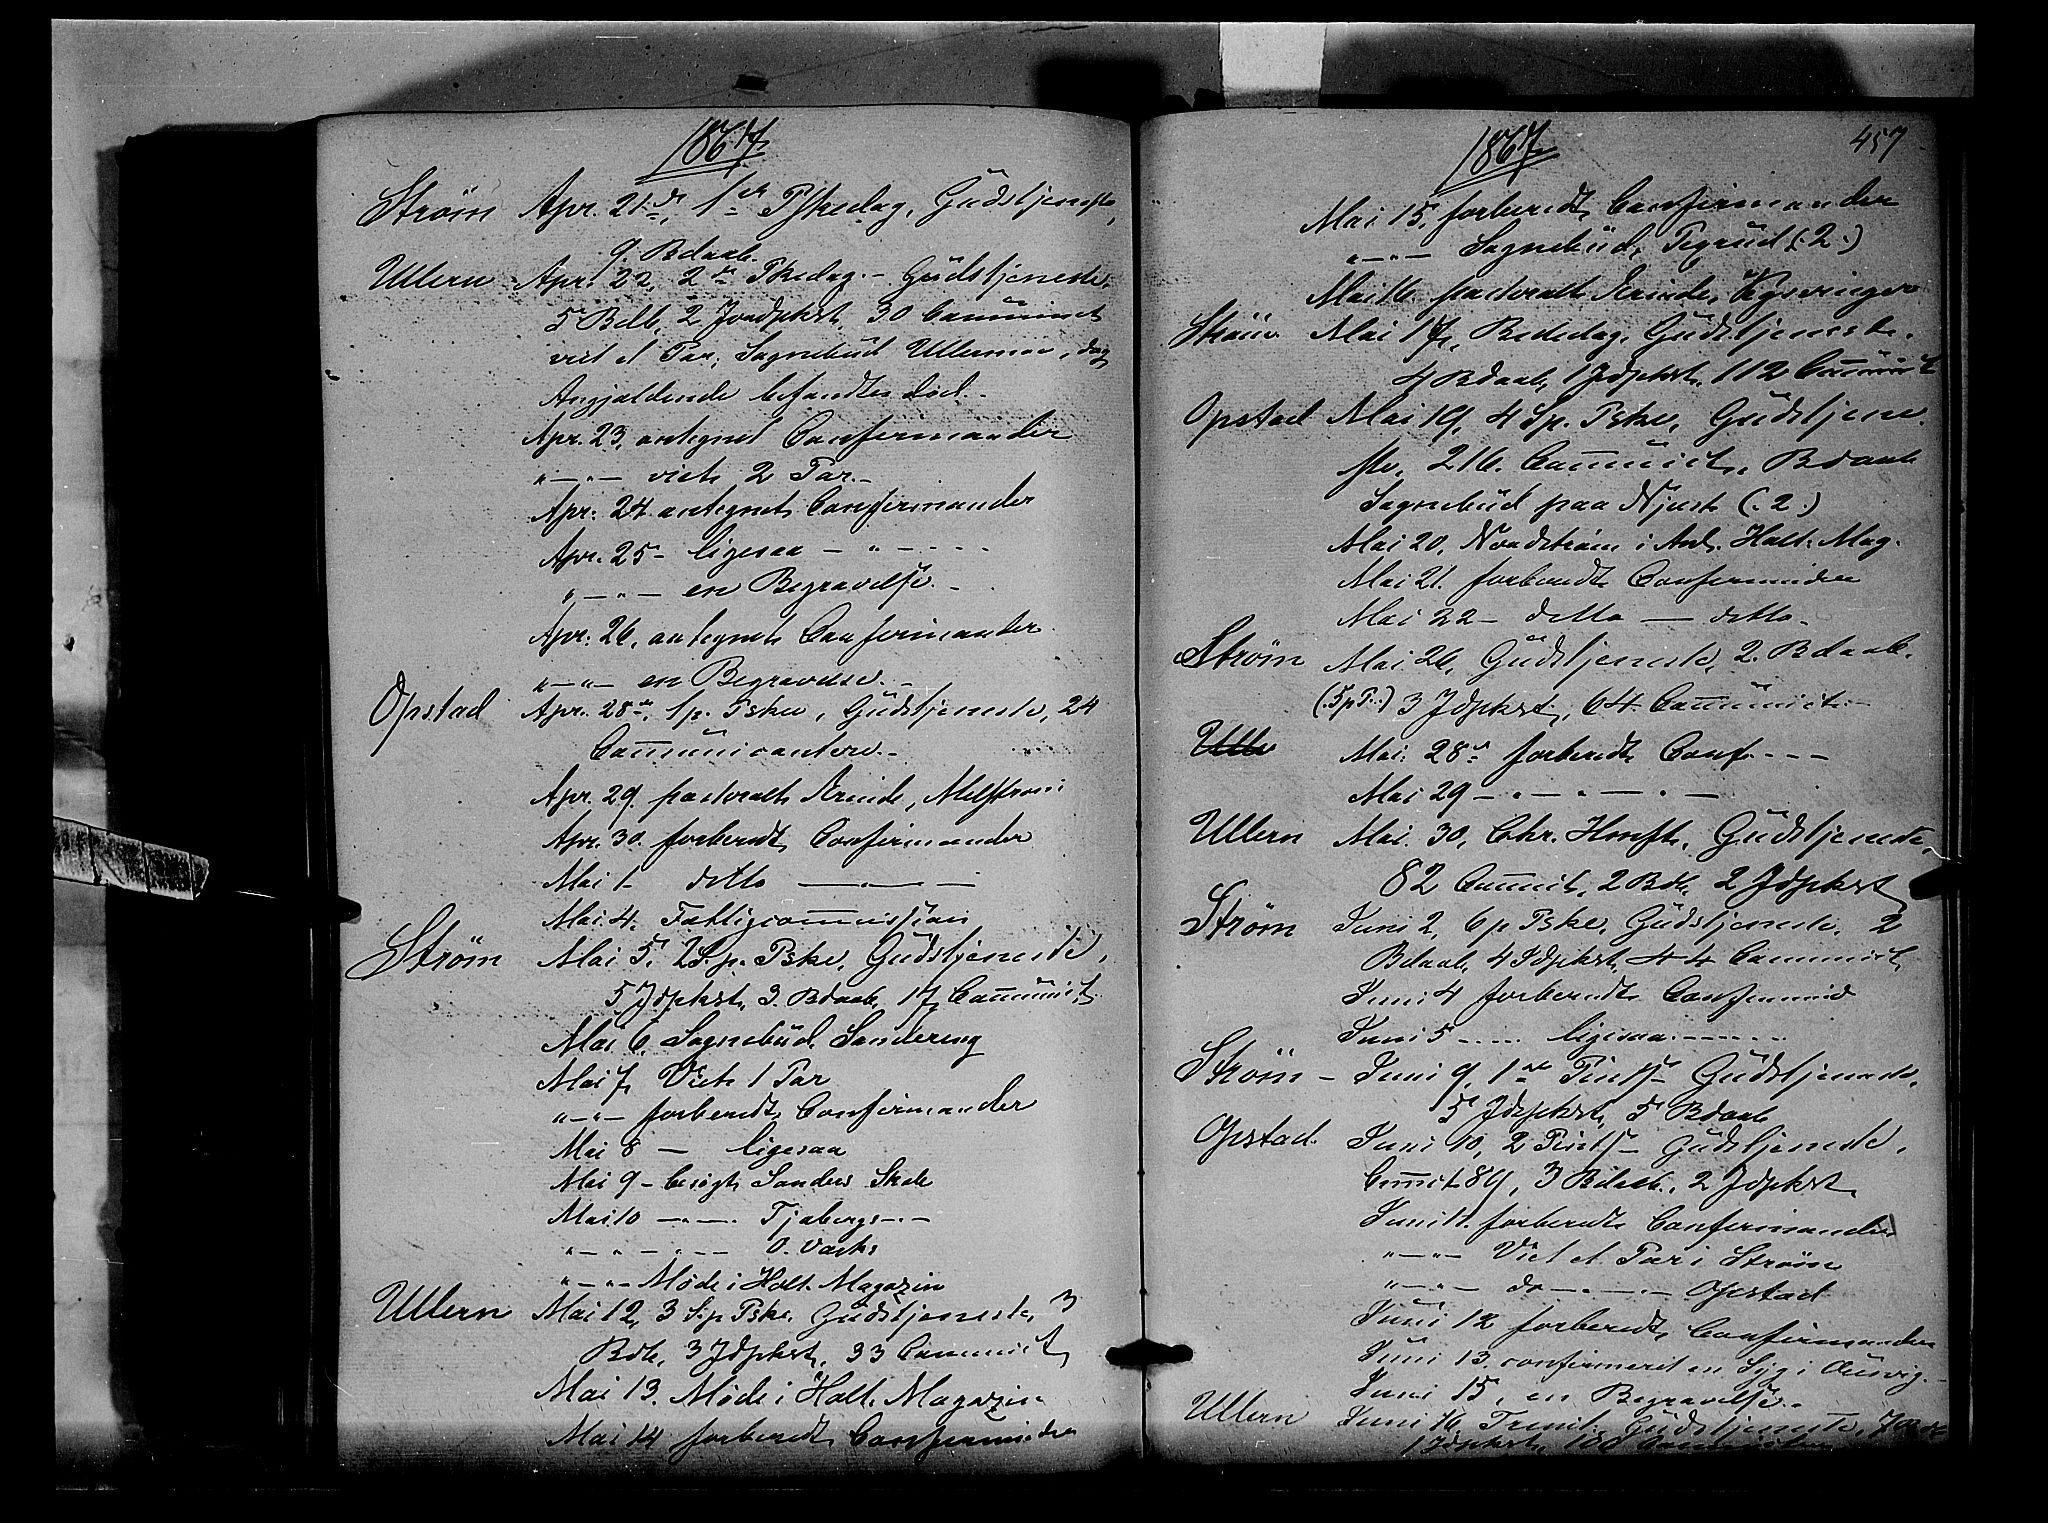 1867
Strøm Apr. 21de, 1ste Pskedag, Gudstjeneste,
9. Bdaab.
Ullern Apr. 22, 2den Pskedag. - Gudstjeneste,
5 Bdb, 2 Jordpkst, 30 Communict
viet et Par, Sognebud Ullernmoe, dog
Angjældende befandtes død. -
Apr. 23, antegnet Confirmander
" - " - viet 2 Par. -
Apr: 24 antegnet Confirmander
Apr. 25 - ligesaa - " - - - -
" - " - en Begravelse. -
Apr. 26, antegnet Confirmander
" - " - en Begravelse. -
Opstad Apr. 28de, 1 S. p. Pske, Gudstjeneste, 24
Communicantere. -
Apr. 29. pastoralt Ærinde,
Apr. 30. forberedt Confirmander
Mai 1 - ditto - " -
Mai 4. Fattigcommission
Strøm Mai 5, 2 S. p. Pske, Gudstjeneste,
5 Jdpkst, 3. Bdaab, 17 Communict.
Mai 6, Sognebud, Sandereng
Mai 7, Viet 1 Par
" - " - forberedt Confirmander
Mai 8 - ligesaa
Mai 9 - besøgt Sanders Skole
Mai. 10 - " - Tjabergs - " -
" - " - " - O. Værks
" - " - Møde i Holt. Magazin
Ullern Mai 12, 3 S. p Pske, Gudstjeneste, 3
Bdb, 3 Jdpkst, 33 Communict
Mai 13. Møde i Holt. Magazin.
Mai 14 forberedt Confirmander
1867 457
Mai 15, forberedt Confirmander
" - " - Sognebud, (: 2 :)
Mai 16. pastoralt Ærinde, Kgsvinger
Strøm Mai 17, Bededag, Gudstjeneste.
4 Bdaab, 1 Jdpkst, 112 Communict
Opstad Mai 19, 4 S. p. Pske, Gudstjene-
ste, 216. Communict, Bdaab
Sognebud paa (: 2 :)
Mai 20, Nordstrøm i Anl. Holt. Mag.
Mai 21. forberedt Confirmander
Mai 22 - ditto - ditto -
Strøm Mai 26, Gudstjeneste, 2. Bdaab.
(: 5 p P. :) 3 Jdpkst, 64 Communict. -
Ulle Mai. 28de forberedt Conf. - - -
Mai 29 - " - " - " -
Ullern Mai. 30, Chr. Hmft, Gudstjeneste,
82 Commit, 2 Bdb, 2 Jdpkst
Strøm Juni 2, 6 p Pske, Gudstjeneste, 2
Bdaab, 4 Jdpkst, 44 Communict,
Juni 4 forberedt Confirmand
Juni 5 .... ligesaa - - - -
Strøm - Juni 9, 1ste Pintse - Gudstjeneste,
5 Jdpkst, 5 Bdaab
Opstad. Juni 10, 2 Pintse - Gudstjeneste,
Commit 89, 3 Bdaab., 2 Jdpkst,
Juni 11. forberedt Confirmander
" - " - Viet et Par i Strøm
" - " - do - " - Opstad
Juni 12 forberedt Confirmander
Juni 13. confirmerit en Syg i
Juni 15, en Begravelse. -
Ullern Juni 16 Trinit. Gudstjeneste,
1 Jdpkst, 100